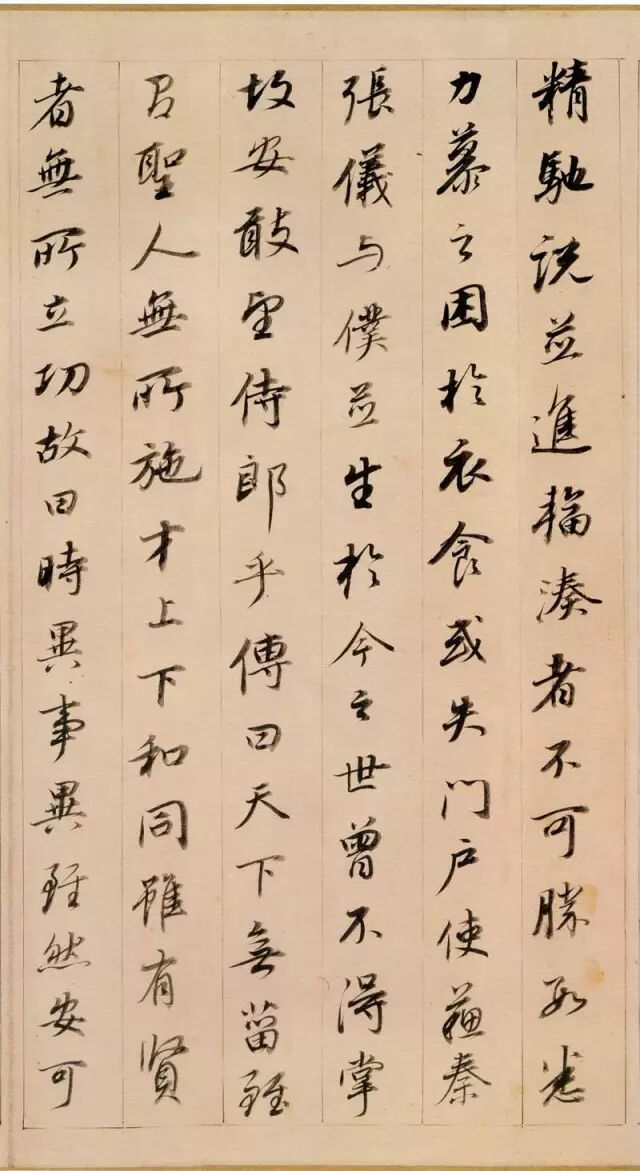 精馳說並進輻湊者不可勝數悉
力慕之困於衣食或失門户使蘇秦
張儀与僕並生於今之世曾不得掌
故安敢望侍郎乎傳曰天下無菑雖
㠯聖人無所施才上下和同雖有賢
者無所立功故曰時異事異雖然安可